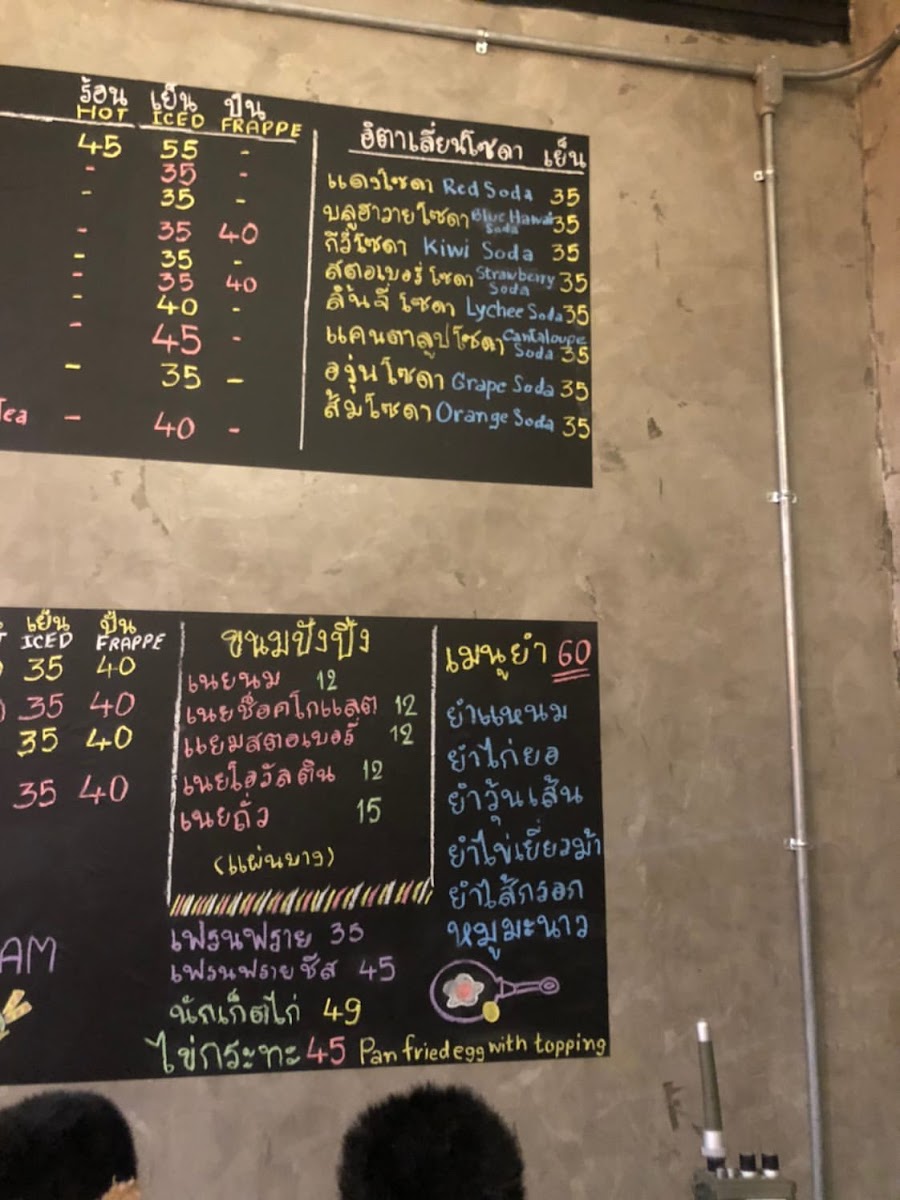 ร้อน เย็น ปั่น
HOT ICED FRAPPE
45 55 -
- 35 -
- 35 -
- 35 40
- 35 -
- 35 40
- 40 -
- 45 -
- 35 -
Tea - 40 -
อิตาเลี่ยนโซดา เย็น
แดงโซดา Red Soda 35
บลูฮาวายโซดา Blue Hawai Soda 35
กีวี่โซดา Kiwi Soda 35
สตอเบอรี่โซดา Strawberry Soda 35
ลิ้นจี่โซดา Lychee Soda 35
แคนตาลูปโซดา Cantaloupe Soda 35
องุ่นโซดา Grape Soda 35
ส้มโซดา Orange Soda 35
เย็น ปั่น
ICED FRAPPE
35 40
35 40
35 40
35 40
AM
ขนมปังปิ้ง
เนยนม 12
เนยช็อคโกแลต 12
แยมสตอเบอรี่ 12
เนยโอวัลติน 12
เนยถั่ว 15
(แผ่นบาง)
เฟรนฟราย 35
เฟรนฟรายชีส 45
นักเก็ตไก่ 49
ไข่กระทะ 45 Pan fried egg with topping
เมนูยำ 60
ยำแหนม
ยำไก่ยอ
ยำวุ้นเส้น
ยำไข่เยี่ยวม้า
ยำไส้กรอก
หมูมะนาว